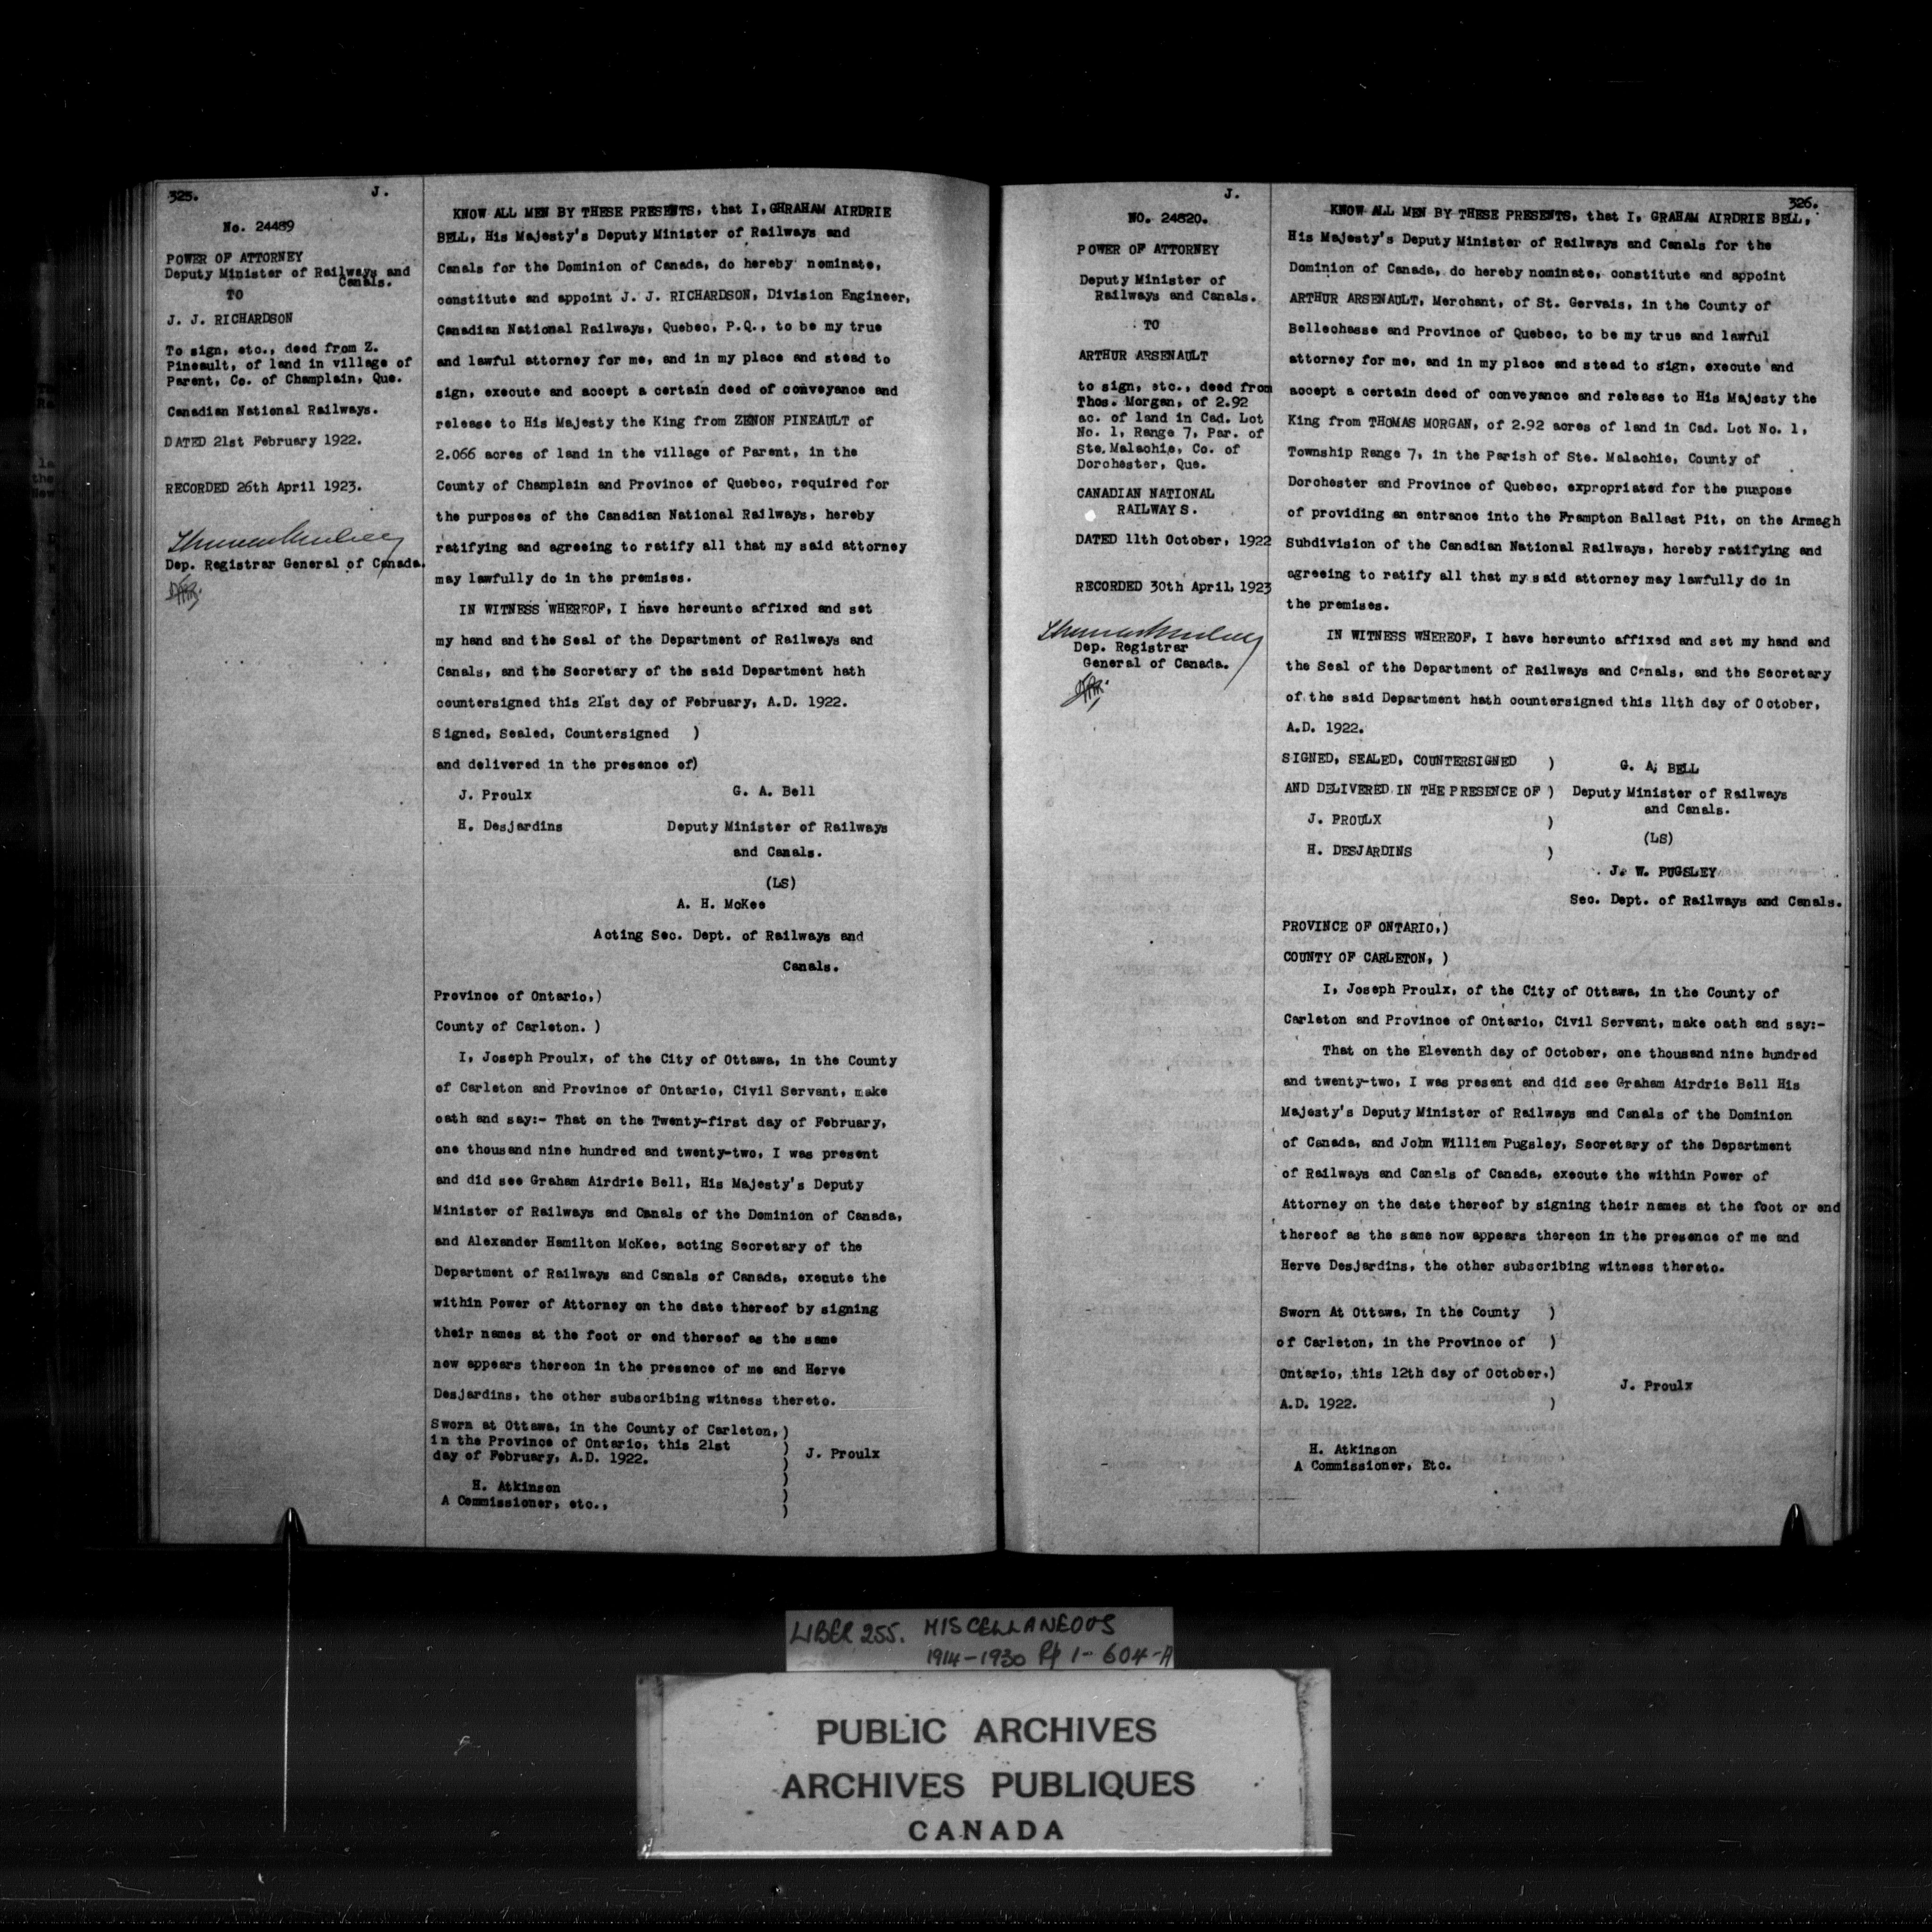 325.
J.
No. 24489
POWER OF ATTORNEY
Deputy Minister of Railways and
Canals.
TO
J. J. RICHARDSON
To sign, etc., deed from Z.
Pineault, of land in village of
Parent, Co. of Champlain, Que.
Canadian National Railways.
DATED 21st February 1922.
RECORDED 26th April 1923.
Dep. Registrar General of Canada.
KNOW ALL MEN BY THESE PRESENTS, that I, GHRAHAM AIRDRIE
BELL, His Majesty's Deputy Minister of Railways and
Canals for the Dominion of Canada, do hereby nominate,
constitute and appoint J. J. RICHARDSON, Division Engineer,
Canadian National Railways, Quebec, P.Q., to be my true
and lawful attorney for me, and in my place and stead to
sign, execute and accept a certain deed of conveyance and
release to His Majesty the King from ZENON PINEAULT of
2.066 acres of land in the village of Parent, in the
County of Champlain and Province of Quebec, required for
the purposes of the Canadian National Railways, hereby
ratifying and agreeing to ratify all that my said attorney
may lawfully do in the premises.
IN WITNESS WHEREOF, I have hereunto affixed and set
my hand and the Seal of the Department of Railways and
Canals, and the Secretary of the said Department hath
countersigned this 21st day of February, A.D. 1922.
Signed, Sealed, Countersigned )
and delivered in the presence of)
J. Proulx G. A. Bell
H. Desjardins Deputy Minister of Railways
and Canals.
(LS)
A. H. McKee
Acting Sec. Dept. of Railways and
Canals.
Province of Ontario,)
County of Carleton. )
I, Joseph Proulx, of the City of Ottawa, in the County
of Carleton and Province of Ontario, Civil Servant, make
oath and say:- That on the Twenty-first day of February,
one thousand nine hundred and twenty-two, I was present
and did see Graham Airdrie Bell, His Majesty's Deputy
Minister of Railways and Canals of the Dominion of Canada,
and Alexander Hamilton McKee, acting Secretary of the
Department of Railways and Canals of Canada, execute the
within Power of Attorney on the date thereof by signing
their names at the foot or end thereof as the same
now appears thereon in the presence of me and Herve
Desjardins, the other subscribing witness thereto.
Sworn at Ottawa, in the County of Carleton, )
in the Province of Ontario, this 21st ) J. Proulx
day of February, A.D. 1922. )
H. Atkinson )
A Commissioner, etc., )
J.
326.
NO. 24820.
POWER OF ATTORNEY
Deputy Minister of
Railways and Canals.
TO
ARTHUR ARSENAULT
to sign, etc., deed from
Thos. Morgan, of 2.92
ac. of land in Cad. Lot
No. 1, Range 7, Par. of
Ste. Malachie, Co. of
Dorchester, Que.
CANADIAN NATIONAL
RAILWAYS.
DATED 11th October, 1922
RECORDED 30th April, 1923
Dep. Registrar
General of Canada.
KNOW ALL MEN BY THESE PRESENTS, that I, GRAHAM AIRDRIE BELL,
His Majesty's Deputy Minister of Railways and Canals for the
Dominion of Canada, do hereby nominate, constitute and appoint
ARTHUR ARSENAULT, Merchant, of St. Gervais, in the County of
Bellechasse and Province of Quebec, to be my true and lawful
attorney for me, and in my place and stead to sign, execute and
accept a certain deed of conveyance and release to His Majesty the
King from THOMAS MORGAN, of 2.92 acres of land in Cad. Lot No. 1,
Township Range 7, in the Parish of Ste. Malachie, County of
Dorchester and Province of Quebec, expropriated for the purpose
of providing an entrance into the Frampton Ballast Pit, on the Armagh
Subdivision of the Canadian National Railways, hereby ratifying and
agreeing to ratify all that my said attorney may lawfully do in
the premises.
IN WITNESS WHEREOF, I have hereunto affixed and set my hand and
the Seal of the Department of Railways and Canals, and the Secretary
of the said Department hath countersigned this 11th day of October,
A.D. 1922.
SIGNED, SEALED, COUNTERSIGNED ) G. A. BELL
AND DELIVERED IN THE PRESENCE OF ) Deputy Minister of Railways
and Canals.
J. PROULX )
(LS)
H. DESJARDINS )
J. W. PUGSLEY
Sec. Dept. of Railways and Canals.
PROVINCE OF ONTARIO,)
COUNTY OF CARLETON, )
I, Joseph Proulx, of the City of Ottawa, in the County of
Carleton and Province of Ontario, Civil Servant, make oath and say:-
That on the Eleventh day of October, one thousand nine hundred
and twenty-two, I was present and did see Graham Airdrie Bell His
Majesty's Deputy Minister of Railways and Canals of the Dominion
of Canada, and John William Pugsley, Secretary of the Department
of Railways and Canals of Canada, execute the within Power of
Attorney on the date thereof by signing their names at the foot or end
thereof as the same now appears thereon in the presence of me and
Herve Desjardins, the other subscribing witness thereto.
Sworn At Ottawa, In the County )
of Carleton, in the Province of )
Ontario, this 12th day of October,)
J. Proulx
A.D. 1922. )
H. Atkinson
A Commissioner, Etc.
LIBER 255. MISCELLANEOUS
1914-1930 Pp 1-604-A
PUBLIC ARCHIVES
ARCHIVES PUBLIQUES
CANADA